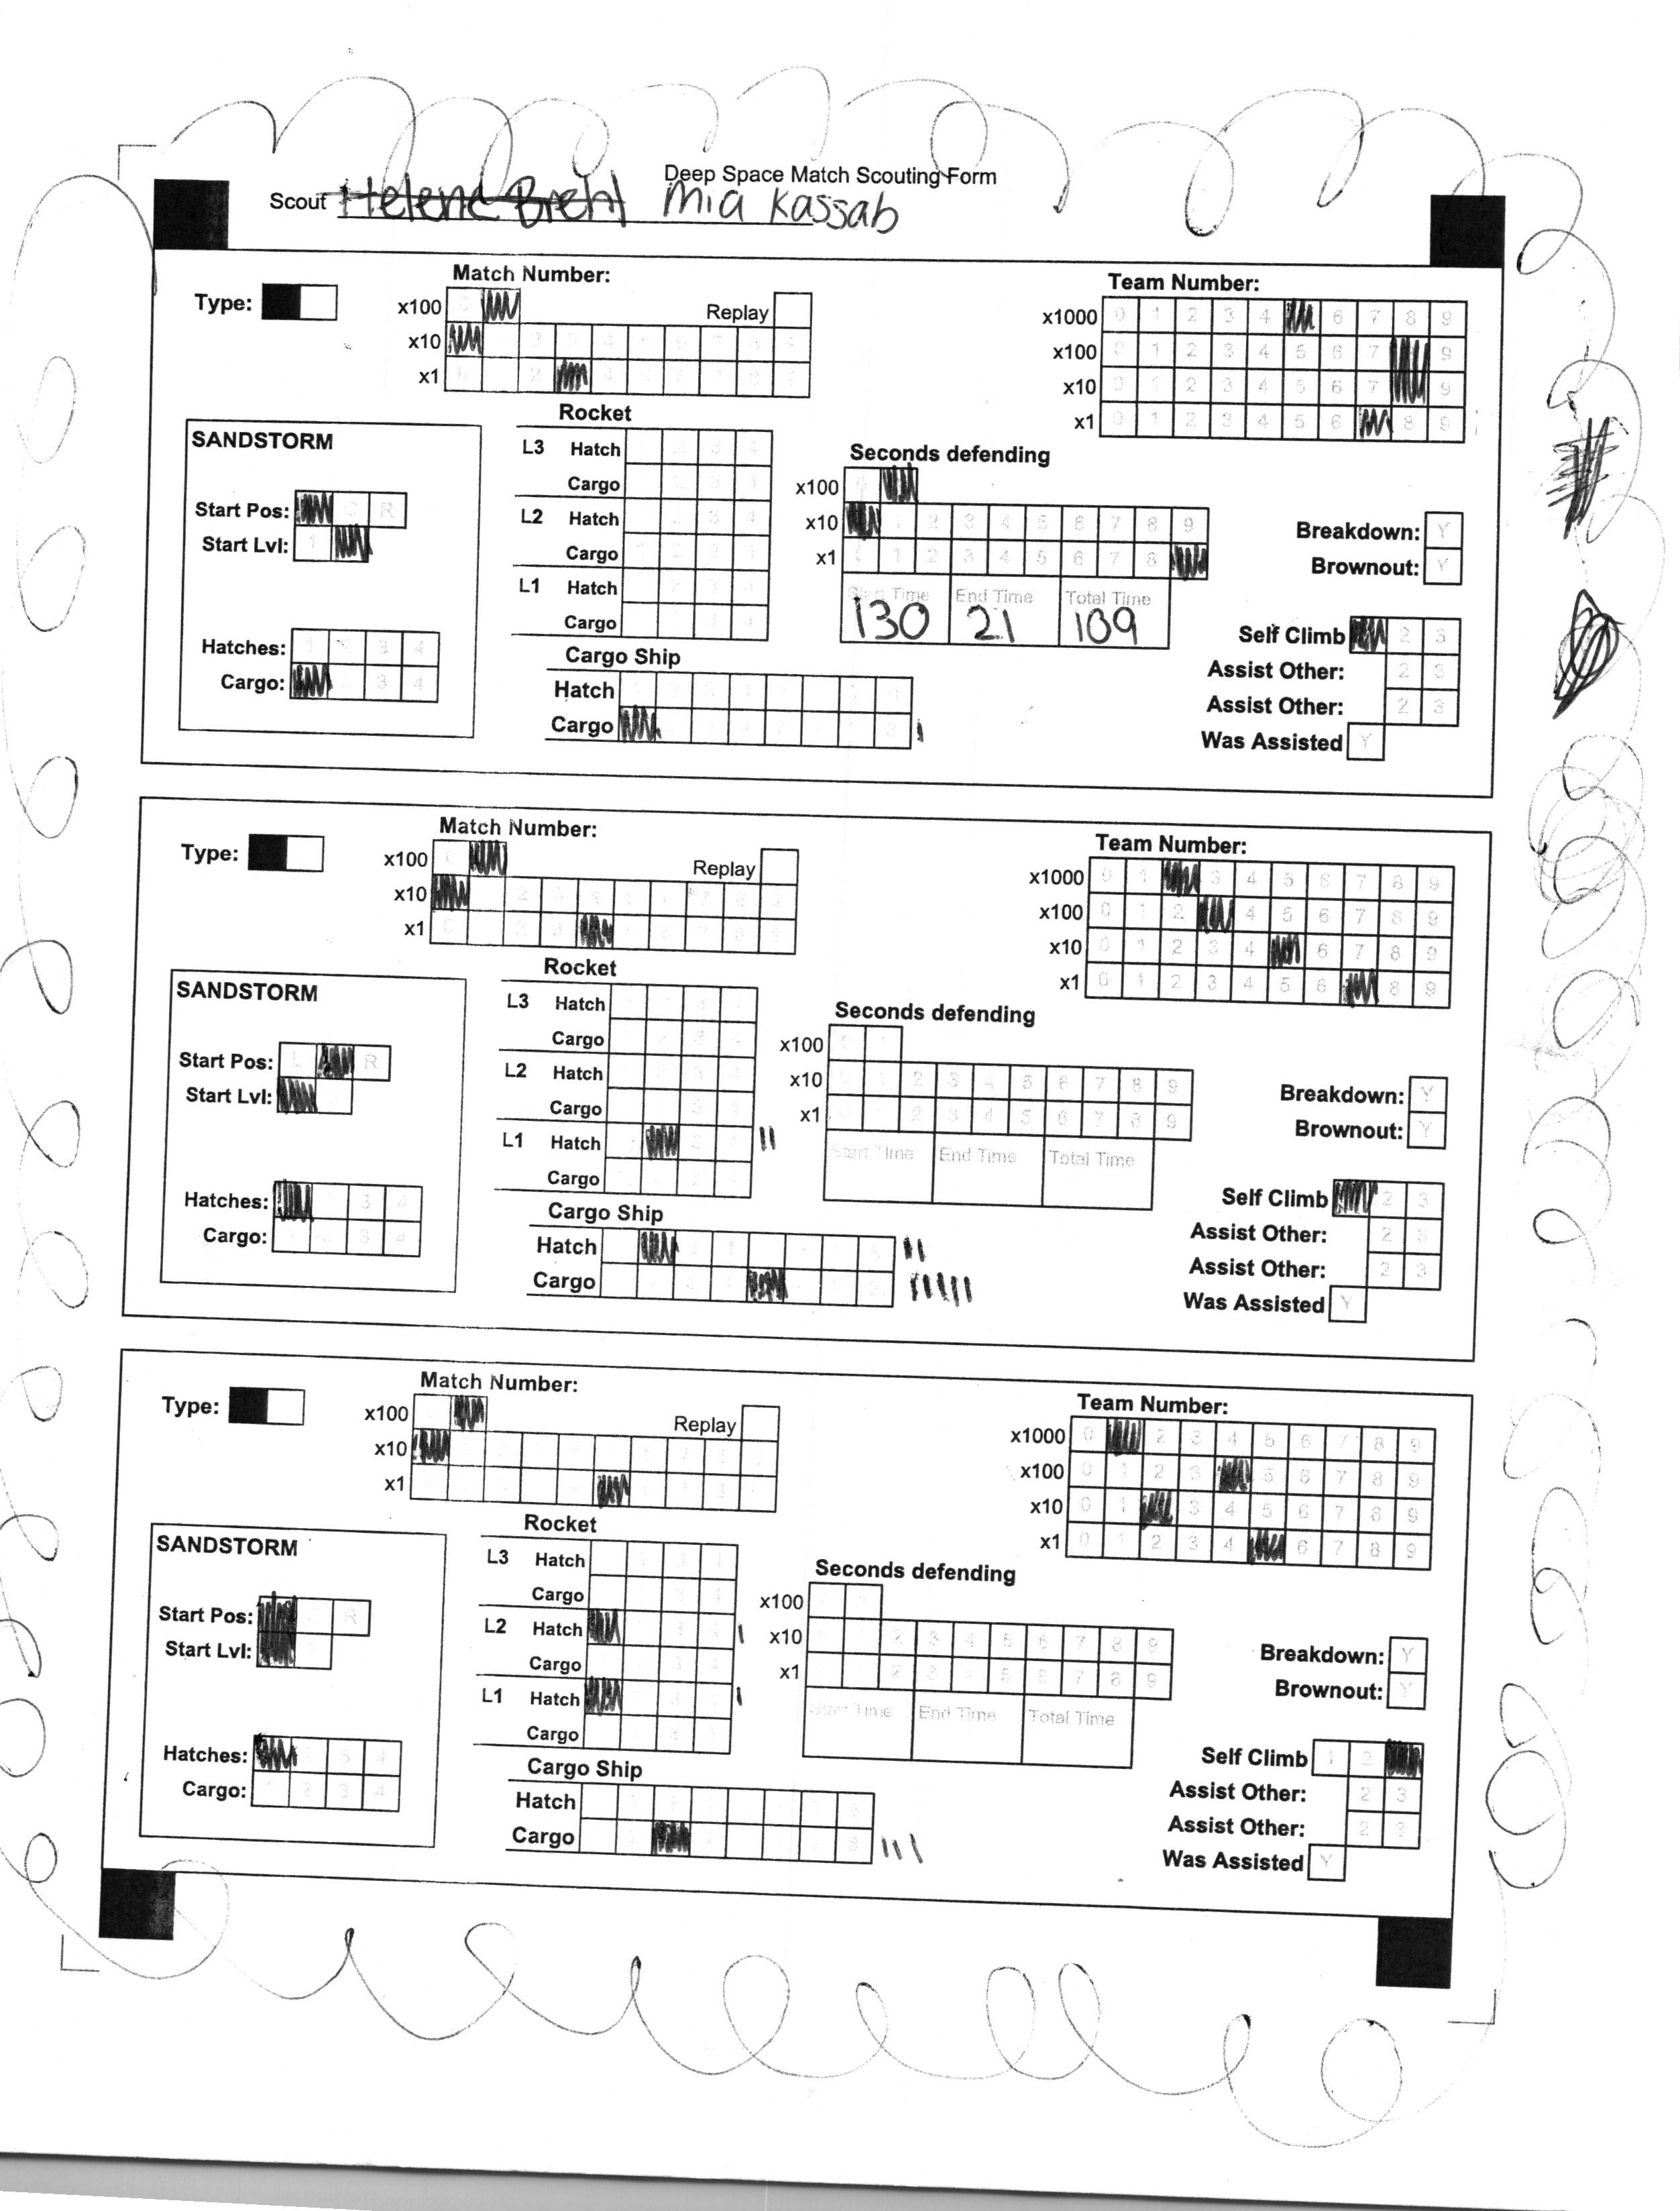 Deep Space Match Scouting Form
Scout Helene Brehl Mia Kassab
Match Number:
Team Number:
Type:
x100
Replay
x10
x1
x1000 0 1 2 3 4 6 7 8 9
x100 0 1 2 3 4 5 6 7 9
x10 0 1 2 3 4 5 6 7 9
x1 0 1 2 3 4 5 6 8 9
SANDSTORM
Start Pos: R
Start Lvl: 1
Hatches: 1 2 3 4
Cargo: 2 3 4
Rocket
L3 Hatch
Cargo
L2 Hatch
Cargo
L1 Hatch
Cargo
Cargo Ship
Hatch
Cargo
Seconds defending
x100
x10 1 2 3 4 5 6 7 8 9
x1 1 2 3 4 5 6 7 8
Start Time End Time Total Time
130 21 109
Breakdown: Y
Brownout: Y
Self Climb 2 3
Assist Other: 2 3
Assist Other: 2 3
Was Assisted Y
Match Number:
Team Number:
Type:
x100
Replay
x10
x1
x1000 0 1 3 4 5 6 7 8 9
x100 0 1 2 4 5 6 7 8 9
x10 0 1 2 3 4 6 7 8 9
x1 0 1 2 3 4 5 6 8 9
SANDSTORM
Start Pos: L R
Start Lvl:
Hatches: 3 4
Cargo: 3 4
Rocket
L3 Hatch
Cargo
L2 Hatch
Cargo
L1 Hatch
Cargo
Cargo Ship
Hatch
Cargo
Seconds defending
x100
x10 2 3 4 5 6 7 8 9
x1 2 3 4 5 6 7 8 9
Start Time End Time Total Time
Breakdown: Y
Brownout: Y
Self Climb 2 3
Assist Other: 2 3
Assist Other: 2 3
Was Assisted Y
Match Number:
Team Number:
Type:
x100
Replay
x10
x1
x1000 0 2 3 4 5 6 7 8 9
x100 0 1 2 3 5 6 7 8 9
x10 0 1 3 4 5 6 7 8 9
x1 0 1 2 3 4 6 7 8 9
SANDSTORM
Start Pos: R
Start Lvl:
Hatches: 3 4
Cargo: 1 2 3 4
Rocket
L3 Hatch
Cargo
L2 Hatch
Cargo
L1 Hatch
Cargo
Cargo Ship
Hatch
Cargo
Seconds defending
x100
x10 2 3 4 5 6 7 8 9
x1 2 3 4 5 6 7 8 9
Start Time End Time Total Time
Breakdown: Y
Brownout: Y
Self Climb 1 2
Assist Other: 2 3
Assist Other: 2 3
Was Assisted Y